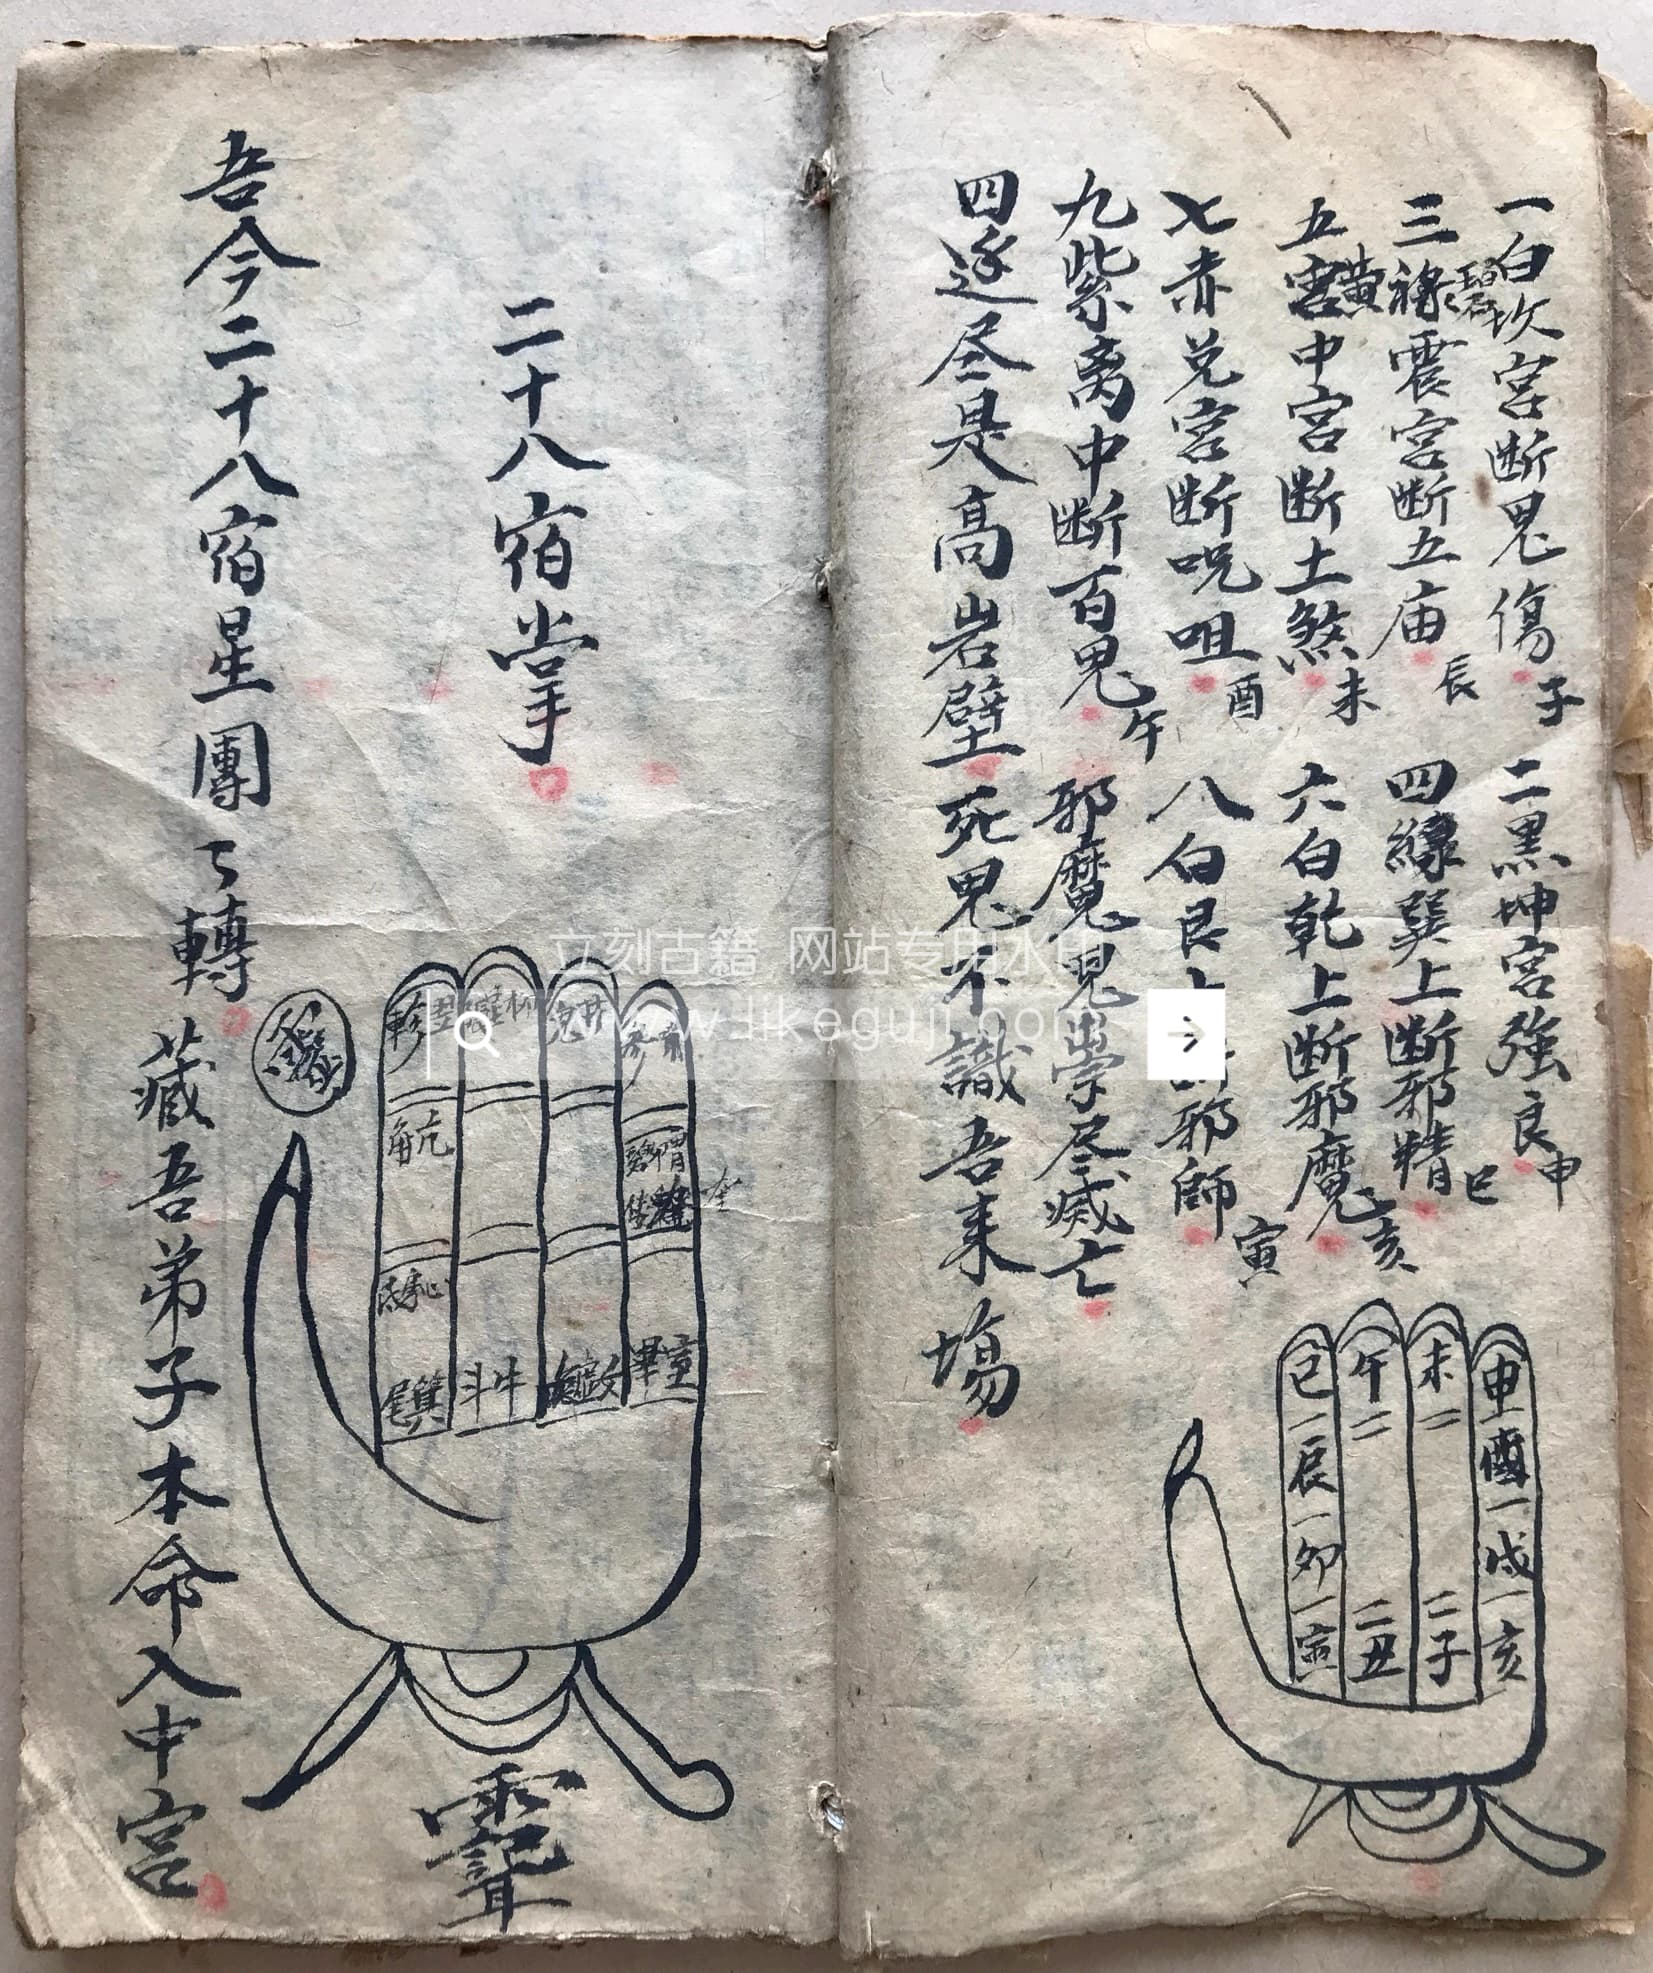 一白坎宮断鬼傷 子
二黑坤宮強良 申
三禄震宮断五庙 辰
碧
四緑巽上断邪精 巳
五宮中宮断土煞 未
黄
六白乾上断邪魔 亥
七赤兑宮断呪咀 酉
八白艮上断邪師 寅
九紫离中断百鬼 午
邪魔見見崇尽滅亡
四逩尽是高岩壁
死鬼不識吾来塲
巳 午 未 申
辰 酉
卯 戌
寅 丑 子 亥
二十八宿掌
吾今二十八宿星團
轉
藏吾弟子本命入中宮
軫 翌 柳 鬼 井 参
角亢
胃
奎
氐
尾箕 斗牛 畢室
立刻古籍 网站专用水印
www.likeguji.com